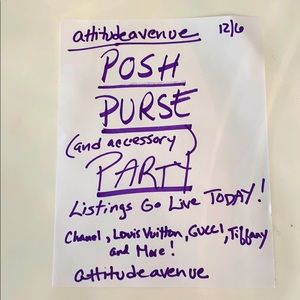 attitudeavenue 12/6
POSH
PURSE
(and accessory)
PARTY
Listings Go Live TODAY!
Chanel, Louis Vuitton, GUCCI, Tiffany
and More!
attitudeavenue